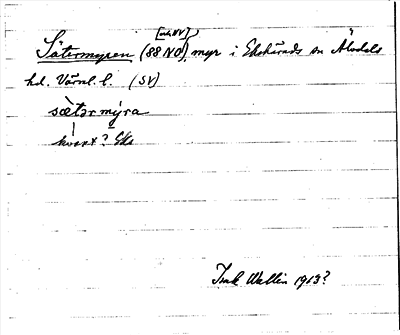 [och NV]
Sätermyren (88 NO), myr i Ekshärads sn Älvdals
hd. Värml. l. (SV)
sætərmýra
kvant? Eks
Wallin 1913?